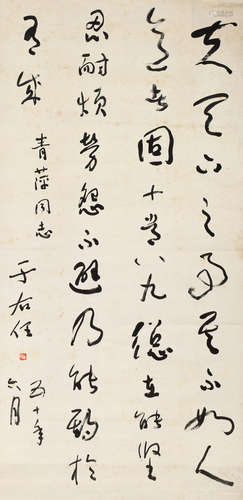 夫天下之事其不如人
意者固十常八九總在能堅
忍耐煩勞怨不避乃能期於
有成
青萍同志
于右任
五十年
六月